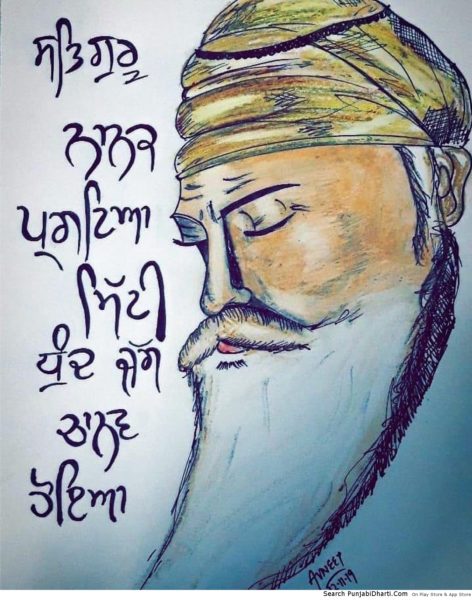 ਸਤਿਗੁਰੂ
ਨਾਨਕ
ਪ੍ਰਗਟਿਆ
ਮਿੱਟੀ
ਧੁੰਦ ਜੱਗ
ਚਾਨਣ
ਹੋਇਆ
AVNEET
12.11.19
Search PunjabiDharti.Com On Play Store & App Store